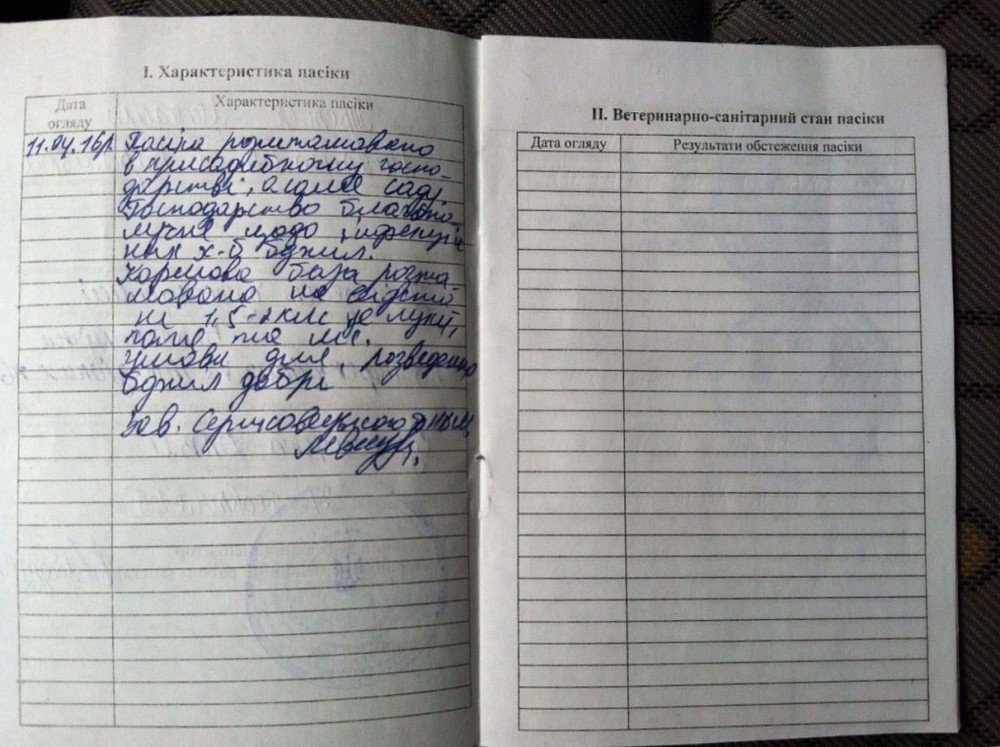 I. Характеристика пасіки
Дата огляду
Характеристика пасіки
11.04.16р. Пасіка розташована
в присадибному госпо-
дарстві, а саме саді.
Господарство благопо-
лучне щодо інфекцій-
них х-б бджіл.
Кормова база розта-
шована на відста-
ні 1,5-2км це луки,
поле та ліс.
Умови для розведення
бджіл добрі
Зав.
II. Ветеринарно-санітарний стан пасіки
Дата огляду
Результати обстеження пасіки